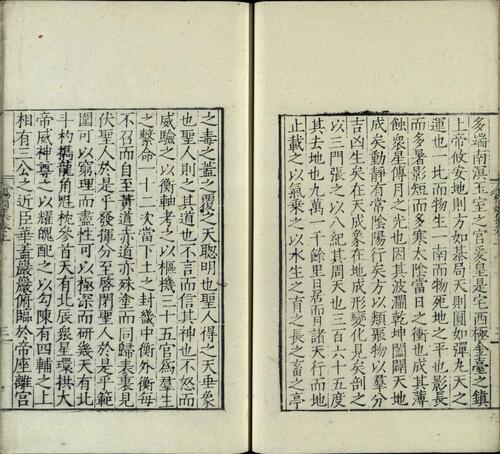 多端南溟玉室之官爰皇是宅西極金臺之鎮
上帝攸安地則方如碁局天則圓如彈丸天之
運也一北而物生一南而物死地之平也影長
而多暑影短而多寒太陰當日之衝也成其薄
蝕衆星傳月之光也因其波瀾乾坤闔闢天地
成矣動靜有常陰陽行矣方以類聚物以羣分
吉凶生矣在天成象在地成形變化見矣剖之
以三門張之以八紀其周天也三百六十五度
其去地也九萬一千餘里日居而月諸天行而地
止載之以氣乘之以水生之育之長之畜之亭
之毒之蓋之覆之天聦明也聖人得之天垂象
也聖人則之其道也不言而信其神也不怒而
威驗之以衡軸考之以樞機三十五官爲羣生
之繫命一十二次當下土之封畿中衡外衡每
不召而自至黃道赤道亦殊塗而同歸表裏見
伏聖人於是乎發揮分至啓閉聖人於是乎範
圍可以窮理而盡性可以極深而研幾天有北
斗杓攜龍角魁枕參首天有北辰衆星環拱大
帝威神尊之以耀魄配之以勾陳有四輔之上
相有三公之近臣華蓋巖巖俯臨於帝座離宮